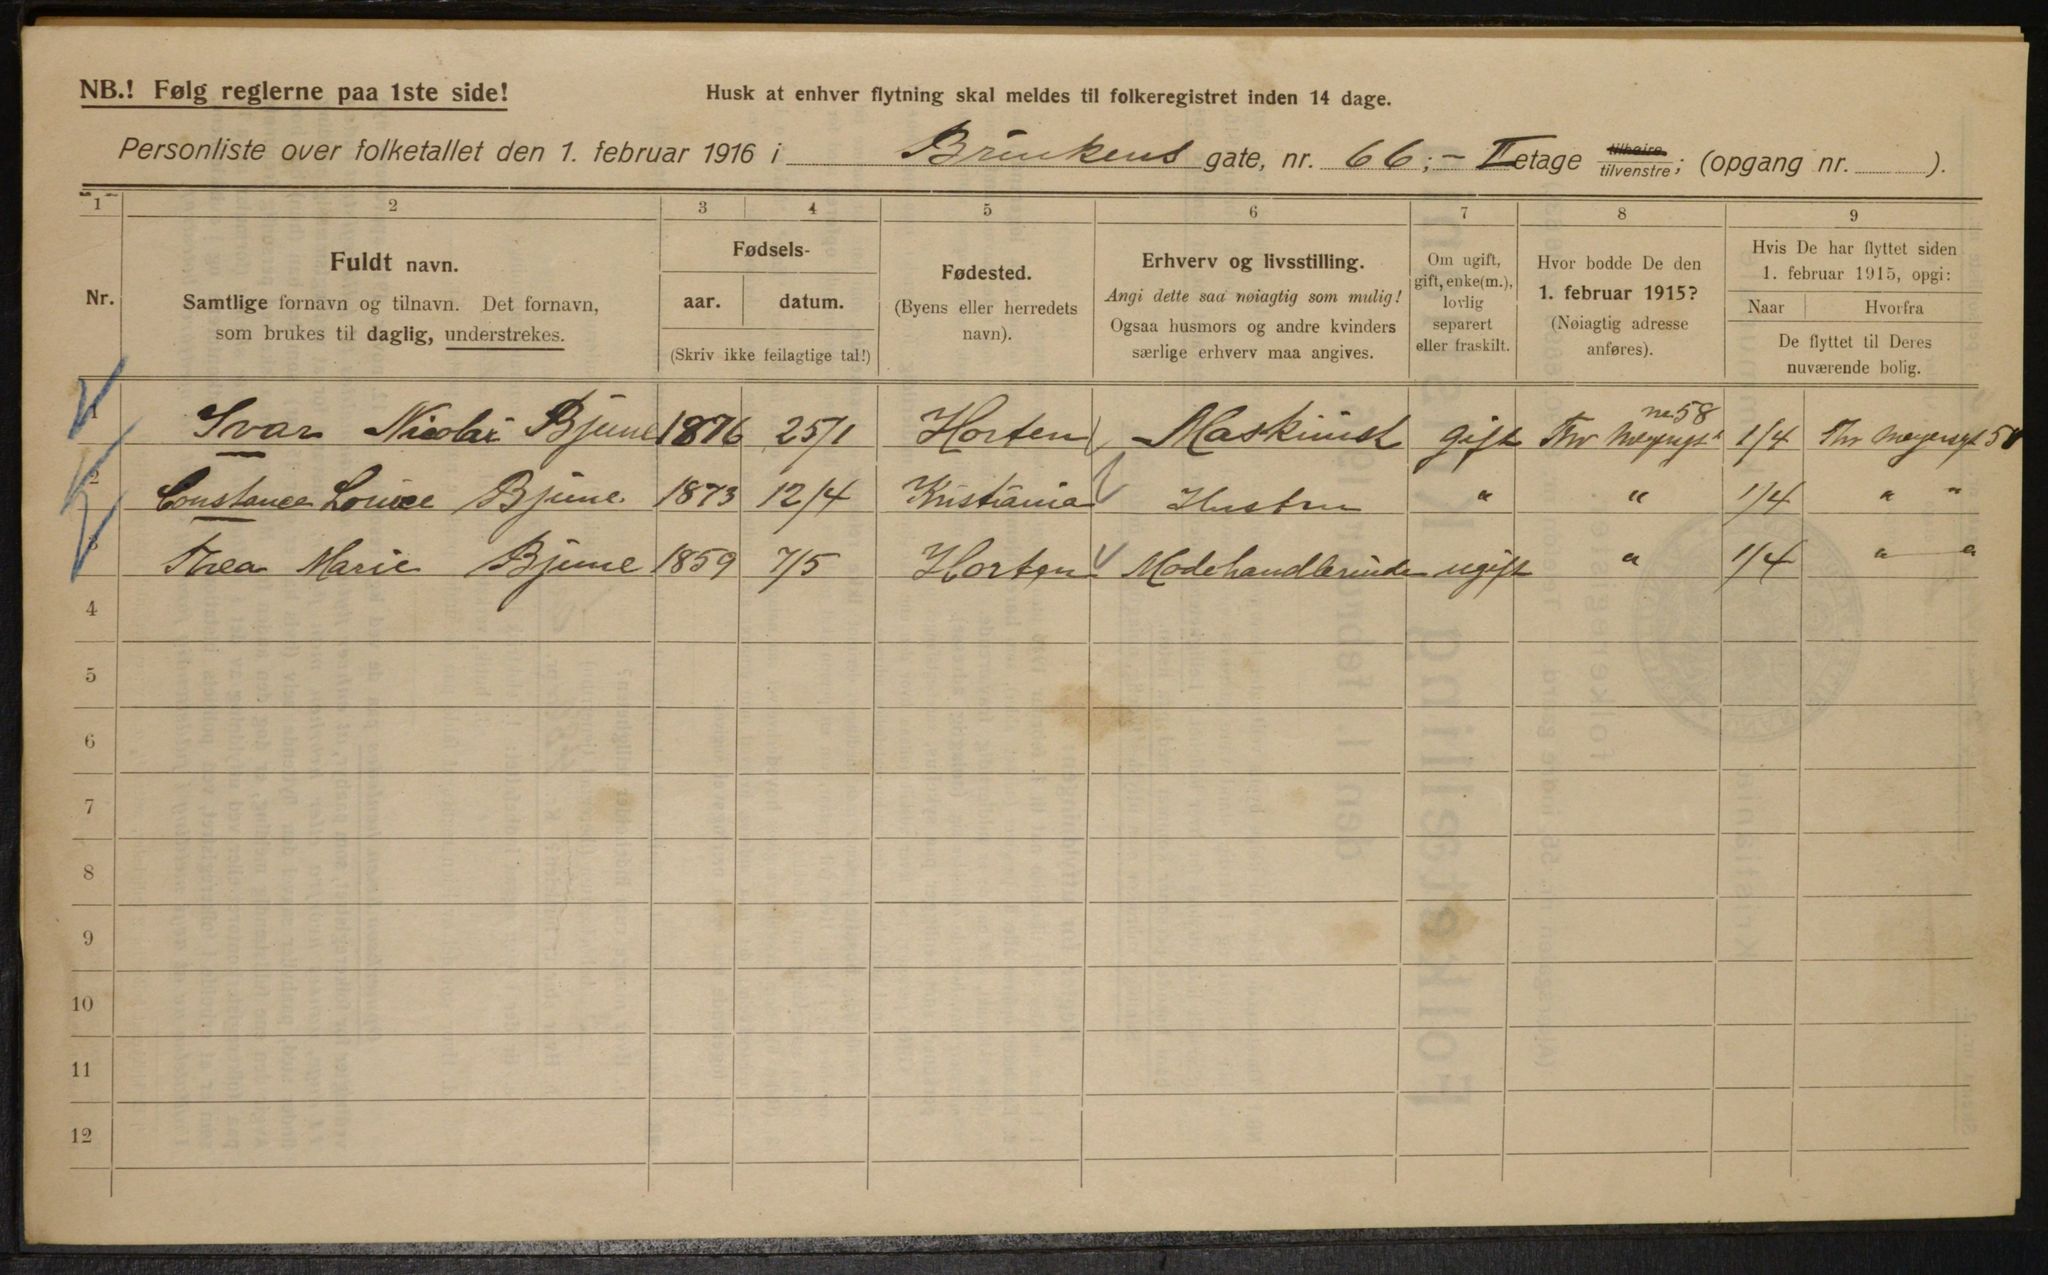 NB.! Følg reglerne paa 1ste side!
Husk at enhver flytning skal meldes til folkeregistret inden 14 dage.
Personliste over folketallet den 1. februar 1916 i Brinkens gate, nr. 66; - II etage tilhøire tilvenstre; (opgang nr. ).
1 2 3 4 5 6 7 8 9
Nr.
Fuldt navn.
Samtlige fornavn og tilnavn. Det fornavn,
som brukes til daglig, understrekes.
Fødsels-
aar. datum.
(Skriv ikke feilagtige tal!)
Fødested.
(Byens eller herredets
navn).
Erhverv og livsstilling.
Angi dette saa nøiagtig som mulig!
Ogsaa husmors og andre kvinders
særlige erhverv maa angives.
Om ugift,
gift, enke(m.),
lovlig
separert
eller fraskilt.
Hvor bodde De den
1. februar 1915?
(Nøiagtig adresse
anføres).
Hvis De har flyttet siden
1. februar 1915, opgi:
Naar Hvorfra
De flyttet til Deres
nuværende bolig.
1 Ivar Nicolai Bjune 1876 25/1 Horten Maskinist gift Thv Meyersgt nr 58 1/4 Thv Meyersgt 58
2 Constance Louice Bjune. 1873 12/4 Kristiania Hustru " " 1/4 " "
3 Thea Marie Bjune 1859 7/5 Horten Modehandlerinde ugift " 1/4 " "
4
5
6
7
8
9
10
11
12